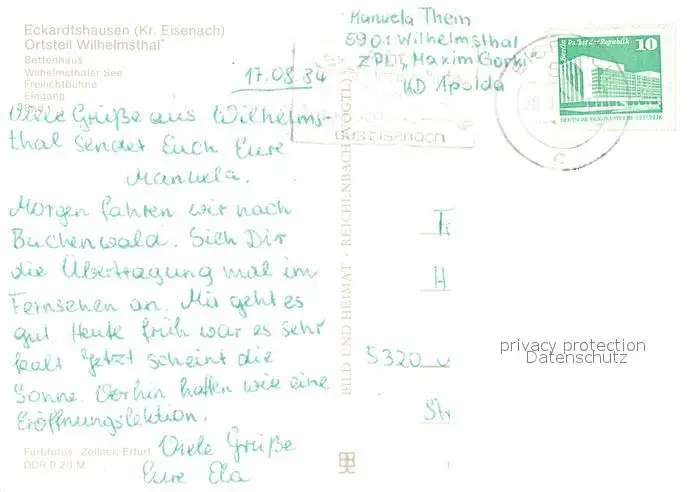 Eckardtshausen (Kr. Eisenach)
Ortsteil Wilhelmsthal
Bettenhaus
Wilhelmsthaler See
Freilichtbühne
Eingang
17.08.84
Viele Grüße aus Wilhelms-
thal sendet Euch Eure
Manuela.
Morgen fahren wir nach
Buchenwald. Sieh Dir
die Übertragung mal im
Fernsehen an. Mir geht es
gut Heute früh war es sehr
kalt Jetzt scheint die
Sonne. Vorhin hatten wir eine
Eröffnungslektion.
Viele Grüße
Eure Ela
Farbfotos: Zellner, Erfurt
DDR 0,20 M
BILD UND HEIMAT · REICHENBACH (VOGTL)
Manuela Thein
5901 Wilhelmsthal
ZPLT, Maxim Gorki
KD Apolda
aus Eisenach
Berlin
Palast d. Republik
10
DEUTSCHE DEMOKRATISCHE REPUBLIK
H
5320
privacy protection
Datenschutz